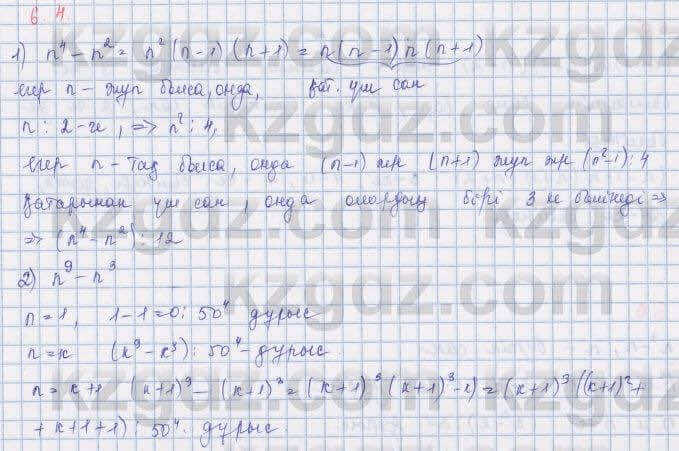 6.4
1) n⁴ - n² = n²(n-1)(n+1) = n(n-1)n(n+1)
егер n - жұп болса, онда, қат. үш сан
n : 2-ге, => n² : 4,
егер n - тақ болса, онда (n-1) ж (n+1) жұп ж (n²-1) : 4
қатарынан үш сан, онда олардың бірі 3 ке бөлінеді =>
=> (n⁴ - n²) : 12
2) n⁹ - n³
n = 1, 1-1=0 : 504 дұрыс
n = k (k⁹ - k³) : 504 - дұрыс
n = k+1 (k+1)⁹ - (k+1)³ = (k+1)³(k+1)³-1) = (k+1)³((k+1)² +
+ k+1+1) : 504. дұрыс.
kzgdz.com